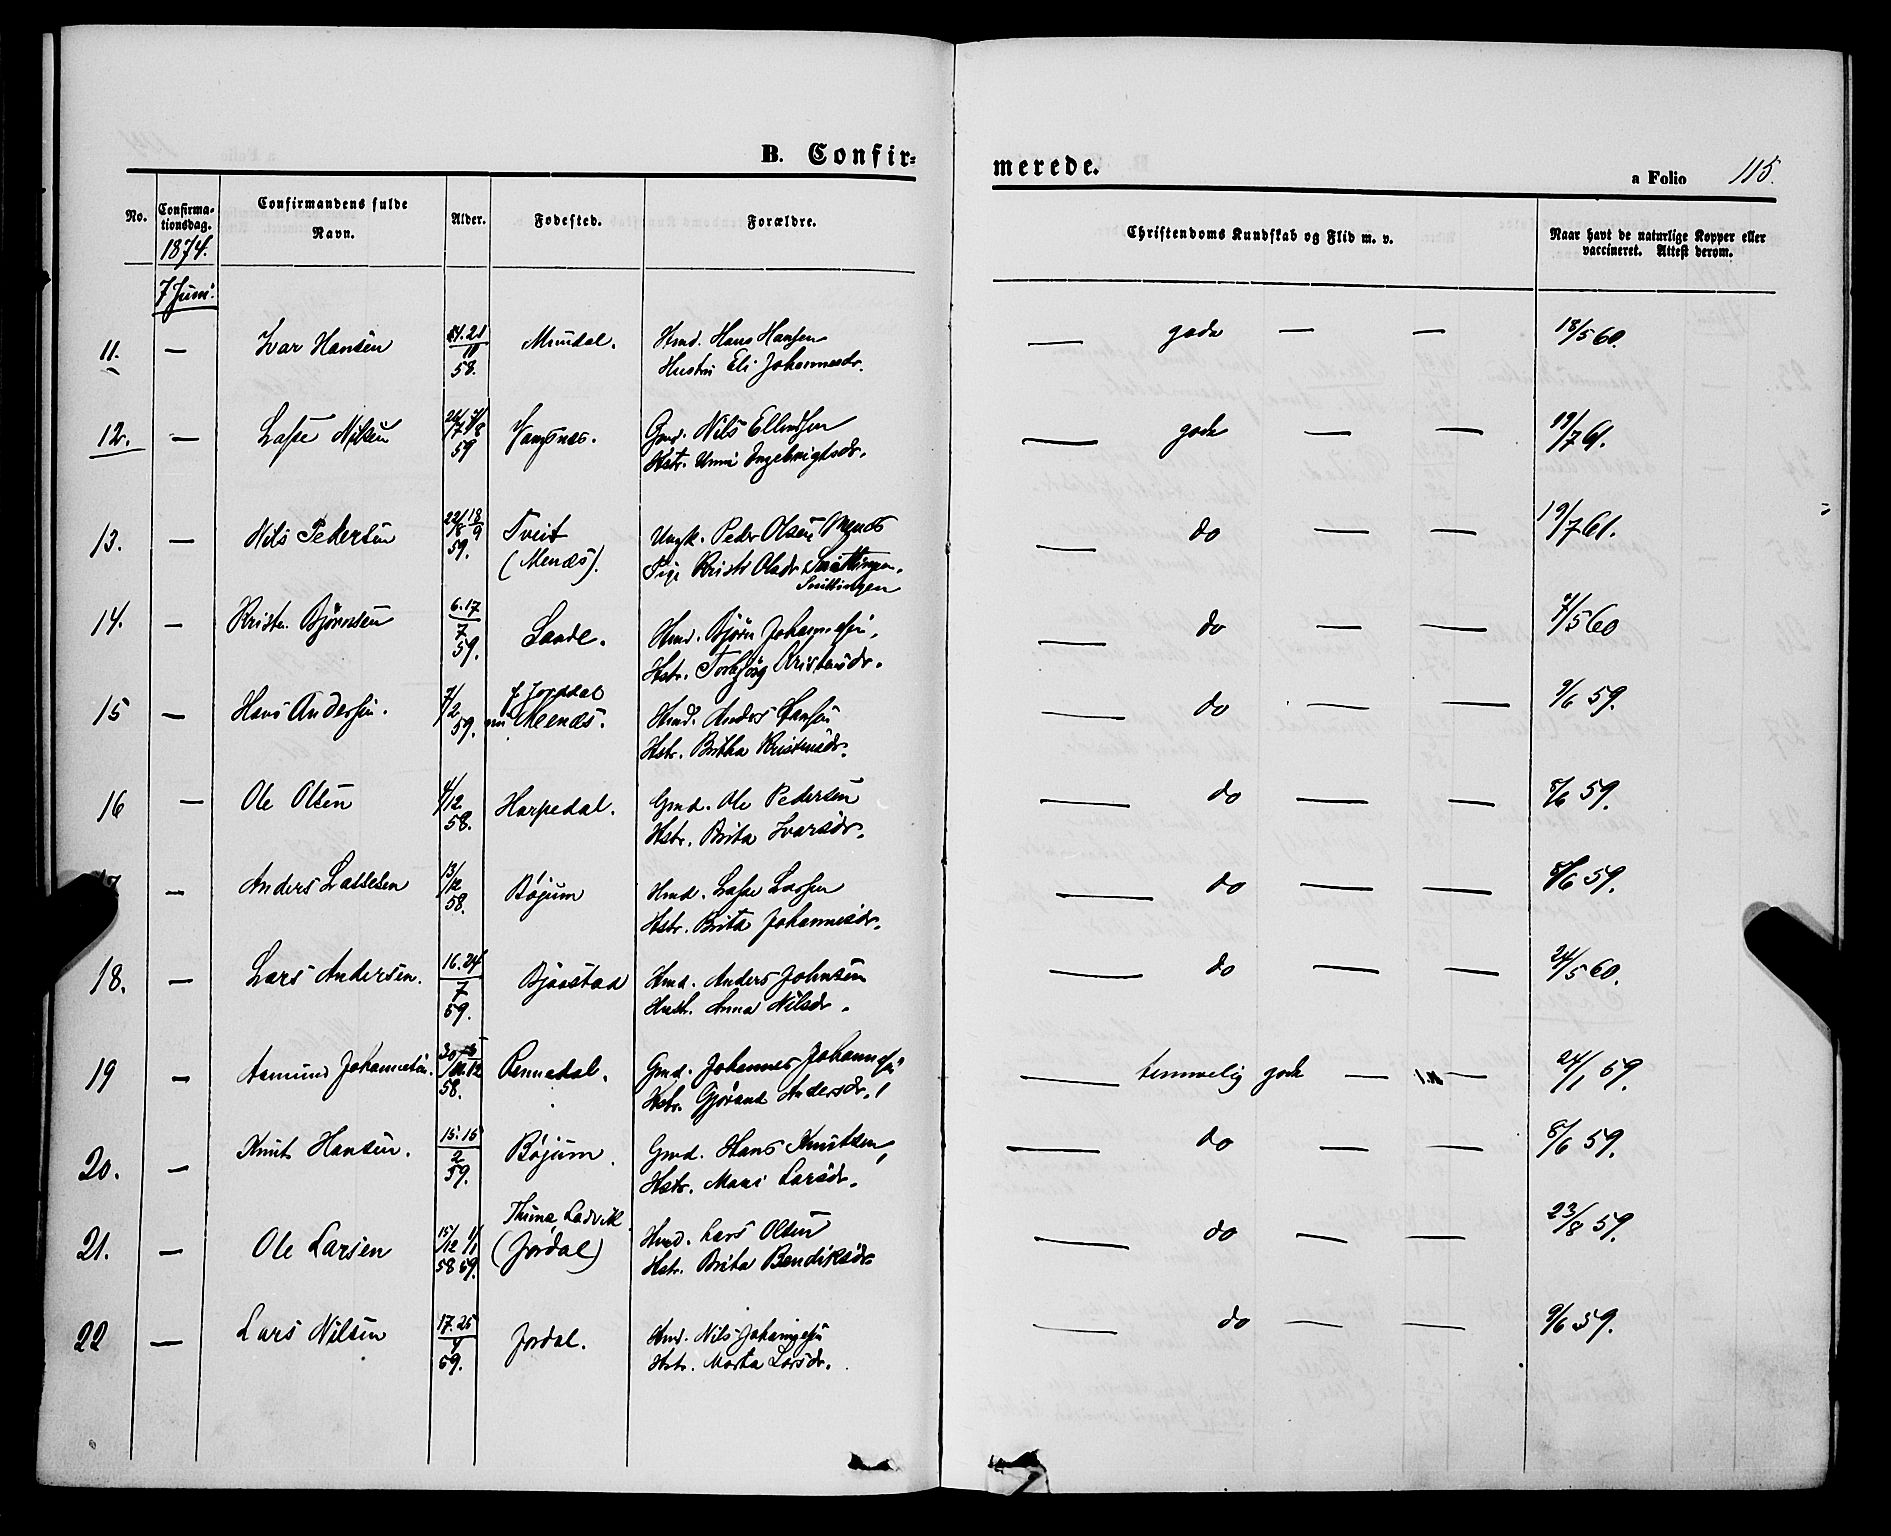 B. Confir=
merede.
a Folio 115.
No. Confirma-tionsdag. Confirmandens fulde Navn. Alder. Fødested. Forældre. Christendoms Kundskab og Flid m. v. Naar havt de naturlige Kopper eller vaccineret. Attest derom.
1874.
7 Juni.
11. — Ivar Hansen 21/11 58. Mundal. Hmd. Hans Hansen — gode — — 18/5 60.
Hustru Eli Johannesdr.
12. — Lasse Nilsen 59 Vangsnæs. Gmd. Nils Ellendsen — gode — — 19/7 61.
Hstr. Unni Ingebrigtsdr.
13. — Nils Pedersen 22/8 18/9 59. Tveit (Menæs). Ungk. Peder Olsen Menæs — do — — 19/7 61.
Pige Kristi Olsdr. Snittingen.
Snittingen
14. — Kristen Bjørnsen 6.17/7 59. Lande. Hmd. Bjørn Johannessen, — do — — 7/5 60
Hstr. Torbjørg Kristensdr.
15 — Hans Andersen. 7/2 59. f. Jordal nu Menæs. Hmd. Anders Hansen — do — — 9/6 59.
Hstr. Britha Kristensdr.
16 — Ole Olsen 4/12 58. Harpedal. Gmd. Ole Pedersen — do — — 8/6 59.
Hstr. Brita Ivarsdr.
— Anders Lassesen 13/12 58. Bøjum Hmd. Lasse Larsen — do — — 8/6 59.
Hstr. Brita Johannesdr.
18. — Lars Andersen. 16.24/7 59. Bjåstad Hmd. Anders Johnsen — do — — 24/5 60.
Hustr. Anna Nilsdr.
19 — Aamund Johannesen. 58. Romedal. Gmd. Johannes Johannessen — temmelig gode — — 24/1 59.
Hstr. Gjørand Andersdr.
20. — Knut Hansen. 15.15/2 59. Bøjum. Gmd. Hans Knutsen, — do — — 8/6 59.
Hstr. Mari Larsdr.
21. — Ole Larsen 15/12 1/1 58 59. Thune, Ladvik (Jordal) Hmd. Lars Olsen — do — — 23/8 59.
Hstr. Brita Bendiksdr.
22 — Lars Nilsen 17.25/4 59. Jordal. Hmd. Nils Johannessen — do — — 9/6 59.
Hstr. Marta Larsdr.